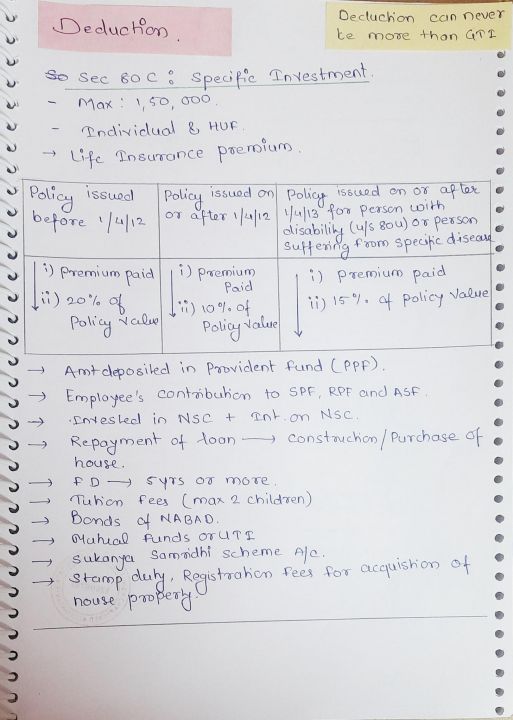 Deduction.
Deduction can never
be more than GTI
So Sec 80 C : Specific Investment.
- Max : 1,50,000.
- Individual & HUF.
→ Life Insurance premium.
Policy issued
before 1/4/12
Policy issued on
or after 1/4/12
Policy issued on or after
1/4/13 for person with
disability (u/s 80U) or person
suffering from specific disease
i) Premium paid
ii) 20% of
Policy value
i) Premium
Paid
ii) 10% of
Policy value
i) Premium paid
ii) 15% of Policy Value
→ Amt deposited in Provident fund (PPF).
→ Employee's contribution to SPF, RPF and ASF.
→ Invested in NSC + Int. on NSC.
→ Repayment of loan → construction/Purchase of
house.
→ FD → 5yrs or more.
→ Tution fees (max 2 children)
→ Bonds of NABAD.
→ Mutual funds or UTI
→ Sukanya Samridhi Scheme A/c.
→ Stamp duty, Registration fees for acquistion of
house property.